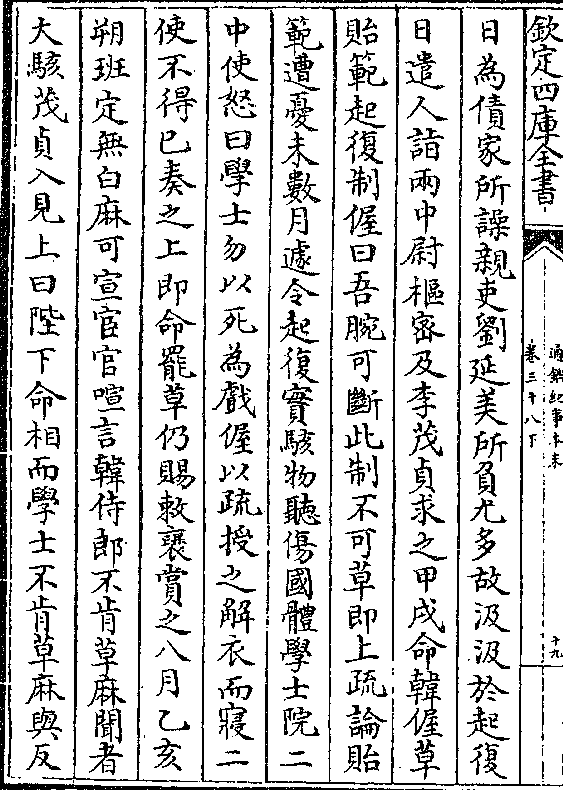 欽定四庫全書
通鑑紀事本末
卷三十八下
十九
日為債家所譟親吏劉延美所負尤多故汲汲於起復
日遣人詣兩中尉樞密及李茂貞求之甲戌命韓偓草
貽範起復制偓曰吾腕可斷此制不可草即上疏論貽
範遭憂未數月遽令起復實駭物聽傷國體學士院二
中使怒曰學士勿以死為戲偓以疏授之解衣而寢二
使不得已奏之上即命罷草仍賜敕褒賞之八月乙亥
朔班定無白麻可宣宦官喧言韓侍郎不肯草麻聞者
大駭茂貞入見上曰陛下命相而學士不肯草麻與反